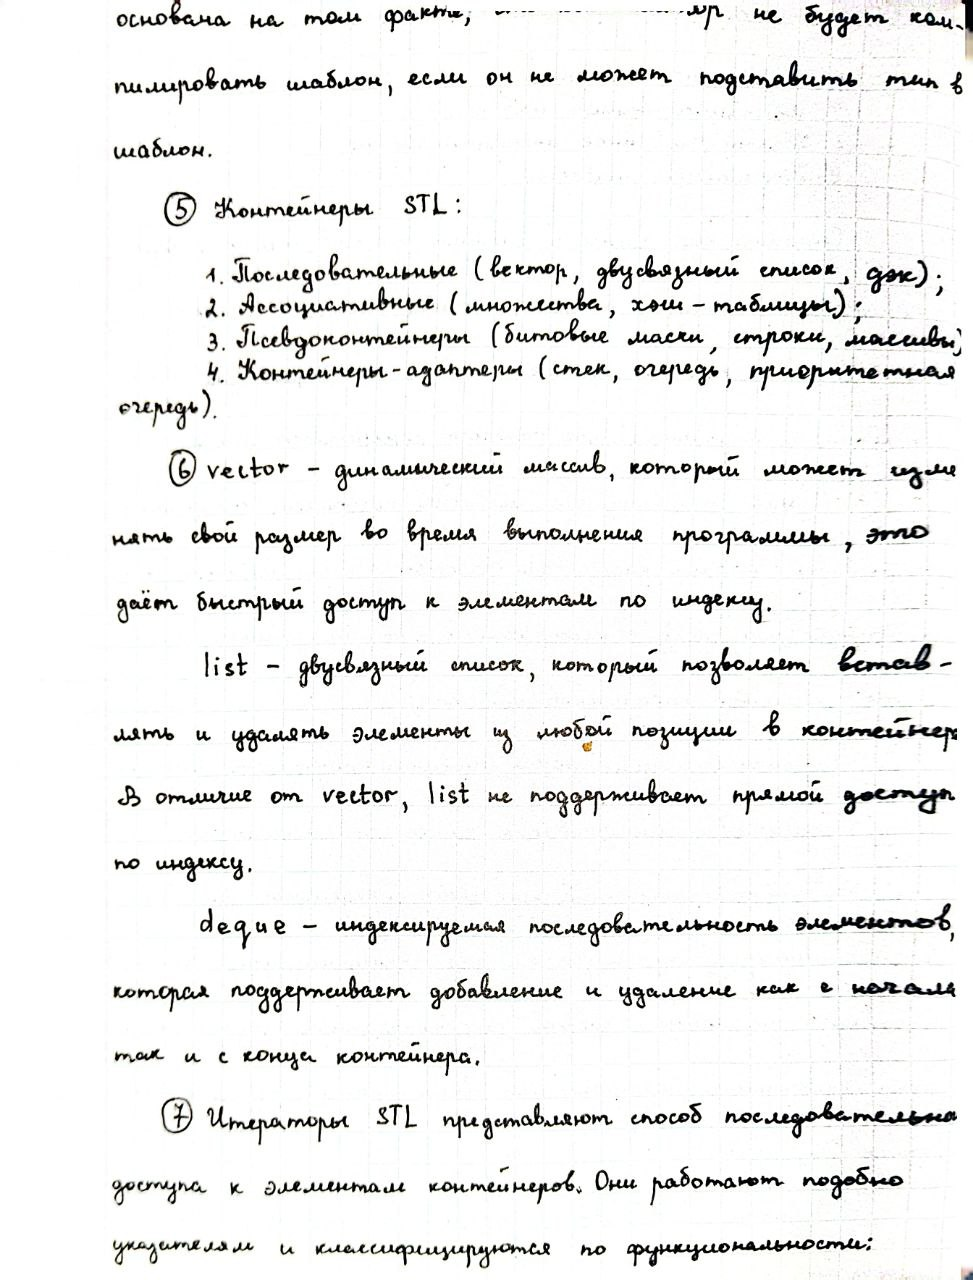 основана на том факте, не будет ком-
пилировать шаблон, если он не может подставить тип в
шаблон.
⑤ Контейнеры STL:
1. Последовательные (вектор, двусвязный список, дэк);
2. Ассоциативные (множества, хэш-таблицы);
3. Псевдоконтейнеры (битовые маски, строки, массивы)
4. Контейнеры-адаптеры (стек, очередь, приоритетная
очередь).
⑥ vector – динамический массив, который может изме
нять свой размер во время выполнения программы, это
даёт быстрый доступ к элементам по индексу.
list – двусвязный список, который позволяет встав-
лять и удалять элементы из любой позиции в контейнер
В отличие от vector, list не поддерживает прямой доступ
по индексу.
deque – индексируемая последовательность элементов,
которая поддерживает добавление и удаление как с начала
так и с конца контейнера.
⑦ Итераторы STL представляют способ последовательно
доступа к элементам контейнеров. Они работают подобно
указателям и классифицируются по функциональности: